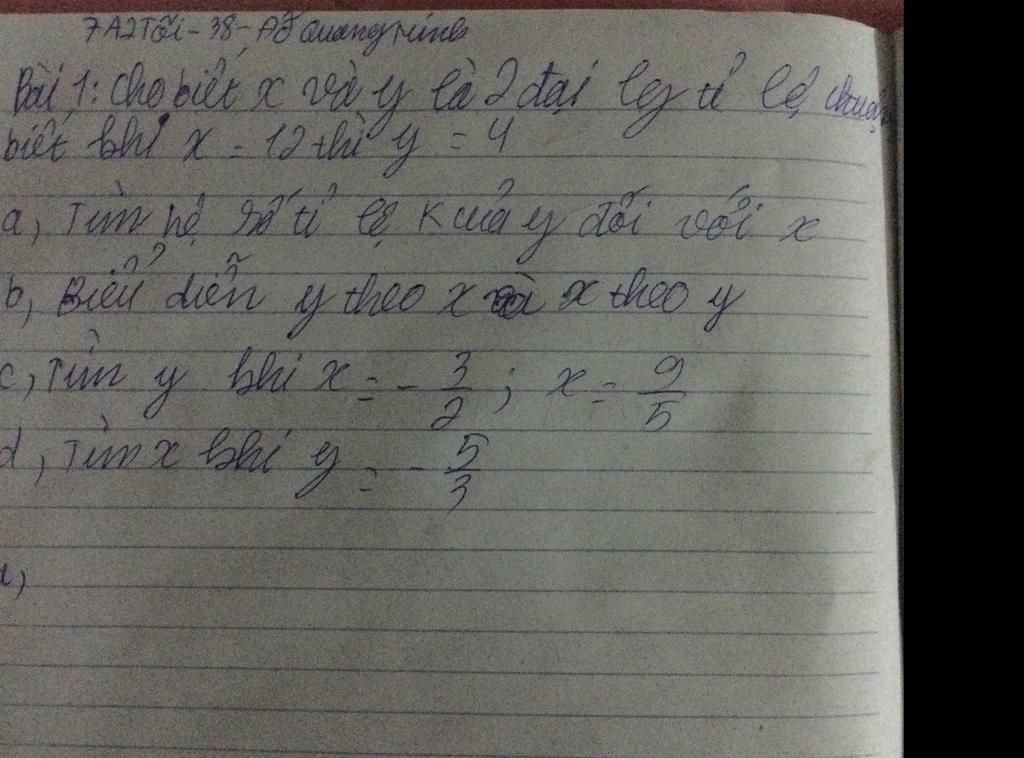 7A2Tối - 38 - Đỗ Quang
Bài 1: Cho biết x và y là 2 đại lg tỉ lệ
biết khi x = 12 thì y = 4
a, Tìm hệ số tỉ lệ K của y đối với x
b, Biểu diễn y theo x và x theo y
c, Tìm y khi x = - 3/2 ; x = 9/5
d, Tìm x khi y = - 5/3
a,